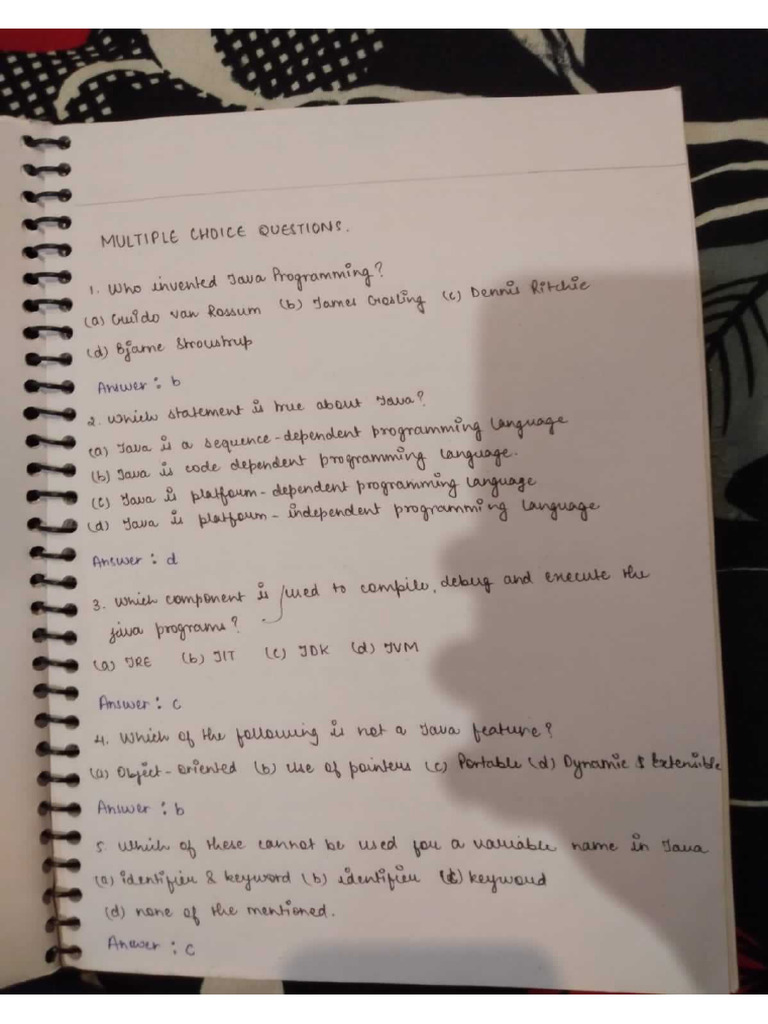 MULTIPLE CHOICE QUESTIONS.
1. Who invented Java Programming?
(a) Guido van Rossum (b) James Gosling (c) Dennis Ritchie
(d) Bjarne Stroustrup
Answer : b
2. Which statement is true about Java?
(a) Java is a sequence-dependent programming language
(b) Java is code dependent programming language.
(c) Java is platform-dependent programming language
(d) Java is platform-independent programming language
Answer : d
3. Which component is used to compile, debug and execute the
java programs?
(a) JRE (b) JIT (c) JDK (d) JVM
Answer : c
4. Which of the following is not a Java feature?
(a) Object-oriented (b) Use of pointers (c) Portable (d) Dynamic & Extensible
Answer : b
5. Which of these cannot be used for a variable name in Java
(a) identifier & keyword (b) identifier (c) keyword
(d) none of the mentioned.
Answer : c